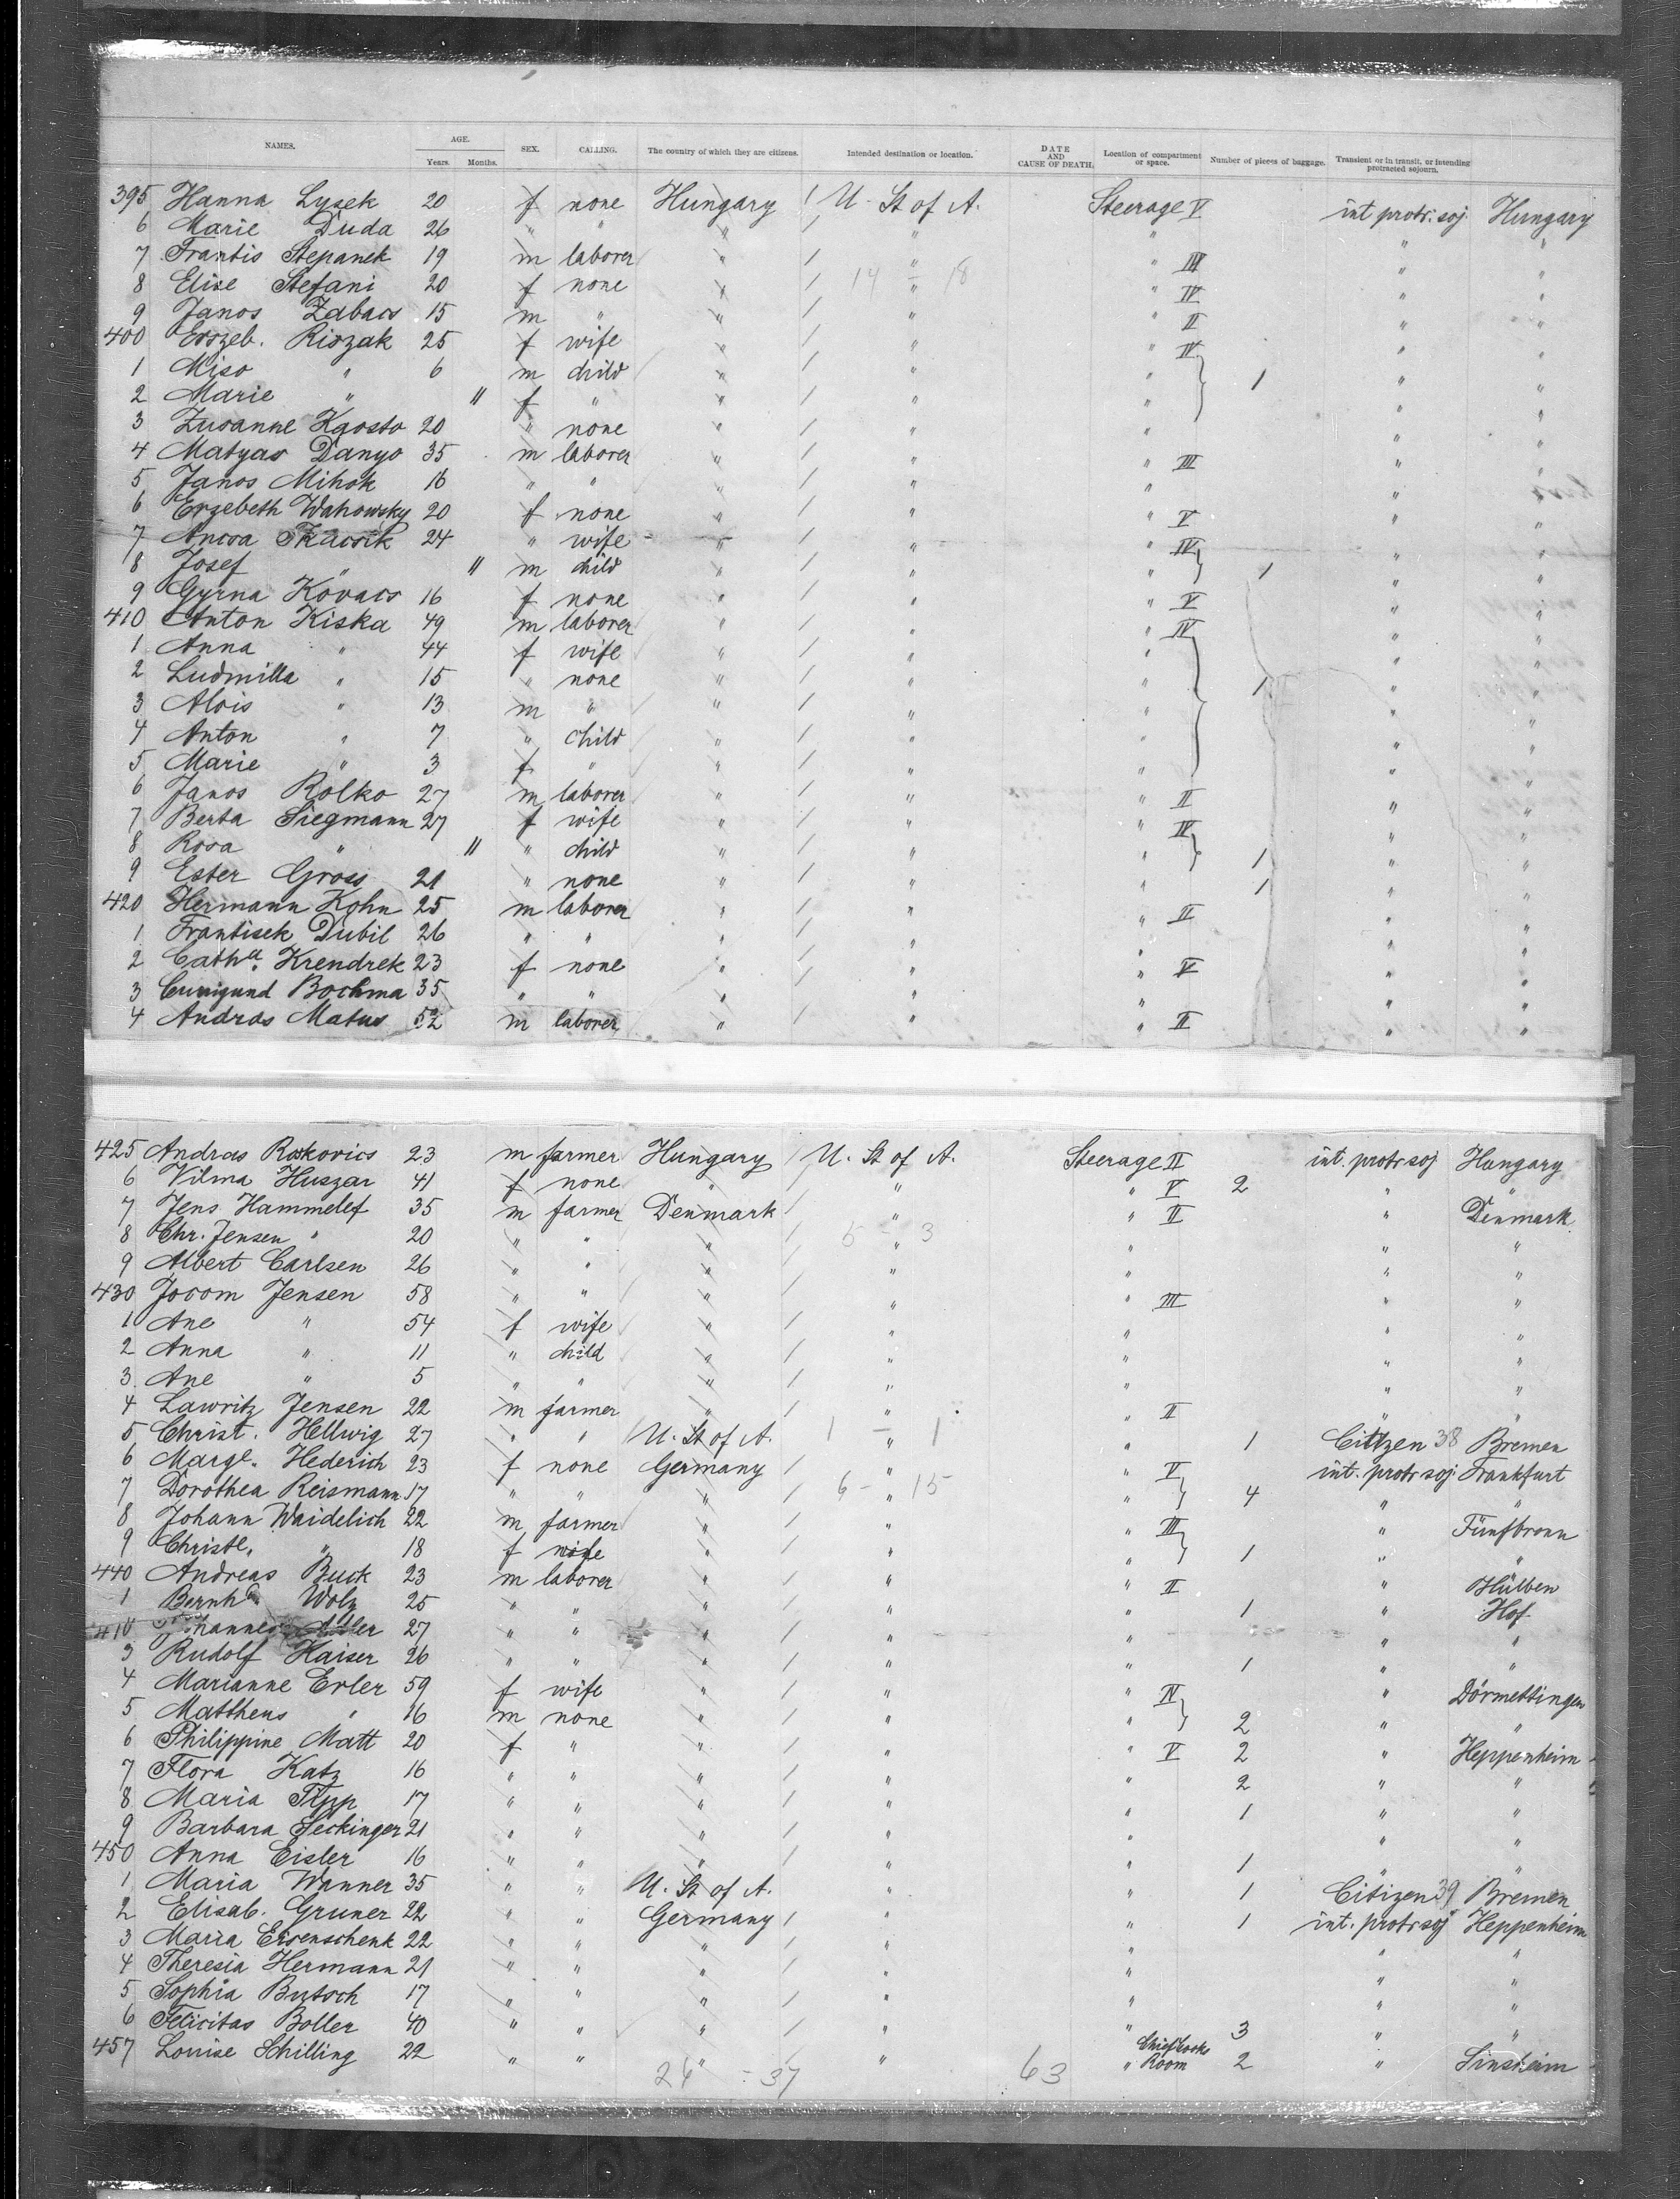 NAMES. AGE. Years. Months. SEX. CALLING. The country of which they are citizens. Intended destination or location. DATE AND CAUSE OF DEATH. Location of compartment or space. Number of pieces of baggage. Transient or in transit, or intending protracted sojourn.
395 Hanna Lysek 20 f none Hungary / U. St of A. Steerage V int protr. soj. Hungary
6 Marie Duda 26 " " " / " " " "
7 Frantis Stepanek 19 m laborer " / " " III " "
8 Elise Stefani 20 f none " / 14 - 18 " " IV " "
9 Janos Zabacs 15 m " " / " " II " "
400 Erszeb. Riszak 25 f wife " / " " IV " "
1 Miso " 6 m child " / " " 1 " "
2 Marie " 11 f " " / " " " "
3 Zusanne Kgosto 20 " none " / " " " "
4 Matyas Danyo 35 m laborer " / " " III " "
5 Janos Mihok 16 " " " / " " " "
6 Erzebeth Wahowsky 20 f none " / " " V " "
7 Ancsa Tkacsik 24 " wife " / " " IV " "
8 Josef " 11 m child " / " " 1 " "
9 Gyrna Kovacs 16 f none " / " " V " "
410 Anton Kiska 49 m laborer " / " " IV " "
1 Anna " 44 f wife " / " " " "
2 Ludmilla " 15 " none " / " " 1 " "
3 Alois " 13 m " " / " " " "
4 Anton " 7 " child " / " " " "
5 Marie " 3 f " " / " " " "
6 Janos Rolko 27 m laborer " / " " II " "
7 Berta Siegmann 27 f wife " / " " IV " "
8 Rosa " 11 " child " / " " 1 " "
9 Ester Gross 21 " none " / " " 1 " "
420 Hermann Kohn 25 m laborer " / " " II " "
1 Frantisek Dubil 26 " " " / " " " "
2 Catha. Krendrek 23 f none " / " " V " "
3 Cunigund Bochma 35 " " " / " " " "
4 Andras Matus 52 m laborer " / " " II " "
425 Andras Roskovics 23 m farmer Hungary / U. St of A. Steerage II int. protr soj Hungary
6 Vilma Huszar 41 f none " / " " V 2 " "
7 Jens Hammelef 35 m farmer Denmark / " " II " Denmark
8 Chr. Jensen " 20 " " " / 5 - 3 " " " "
9 Albert Carlsen 26 " " " / " " " "
430 Jocom Jensen 58 " " " / " " III " "
1 Ane " 54 f wife " / " " " "
2 Anna " 11 " child " / " " " "
3 Ane " 5 " " " / " " " "
4 Lawritz Jensen 22 m farmer " / " " II " "
5 Christ. Hellwig 27 " " U. St of A. 1 - 1 " " 1 Citizen 38 Bremen
6 Margl. Hederich 23 f none Germany / " " V int. protr soj. Frankfurt
7 Dorothea Reismann 17 " " " / 6 - 15 " " 4 " "
8 Johann Waidelich 22 m farmer " / " " III " Fünfbronn
9 Christl. " 18 f wife " / " " 1 " "
440 Andreas Buck 23 m laborer " / " " II " Hülben
1 Bernhd Wolz 25 " " " / " " 1 " Hof
27 " " " / " " " "
3 Rudolf Kaiser 26 " " " / " " 1 " "
4 Marianne Erler 59 f wife " / " " IV " Dörmettingen
5 Mattheus " 16 m none " / " " 2 " "
6 Philippine Matt 20 f " " / " " V 2 " Heppenheim
7 Flora Katz 16 " " " / " " 2 " "
8 Maria Tipp 17 " " " / " " 1 " "
9 Barbara Seckinger 21 " " " / " " " "
450 Anna Eisler 16 " " " / " " 1 " "
1 Maria Wanner 35 " " U. St of A. " " 1 Citizen 39 Bremen
2 Elisab. Gruner 22 " " Germany / " " 1 int. protr soj Heppenheim
3 Maria Eisenschenk 22 " " " / " " " "
4 Theresia Hermann 21 " " " / " " " "
5 Sophia Butsch 17 " " " / " " " "
6 Felicitas Boller 40 " " " / " " 3 " "
457 Louise Schilling 22 " " " " " Chief Cooks Room 2 " Sinsheim
26 - 37 63